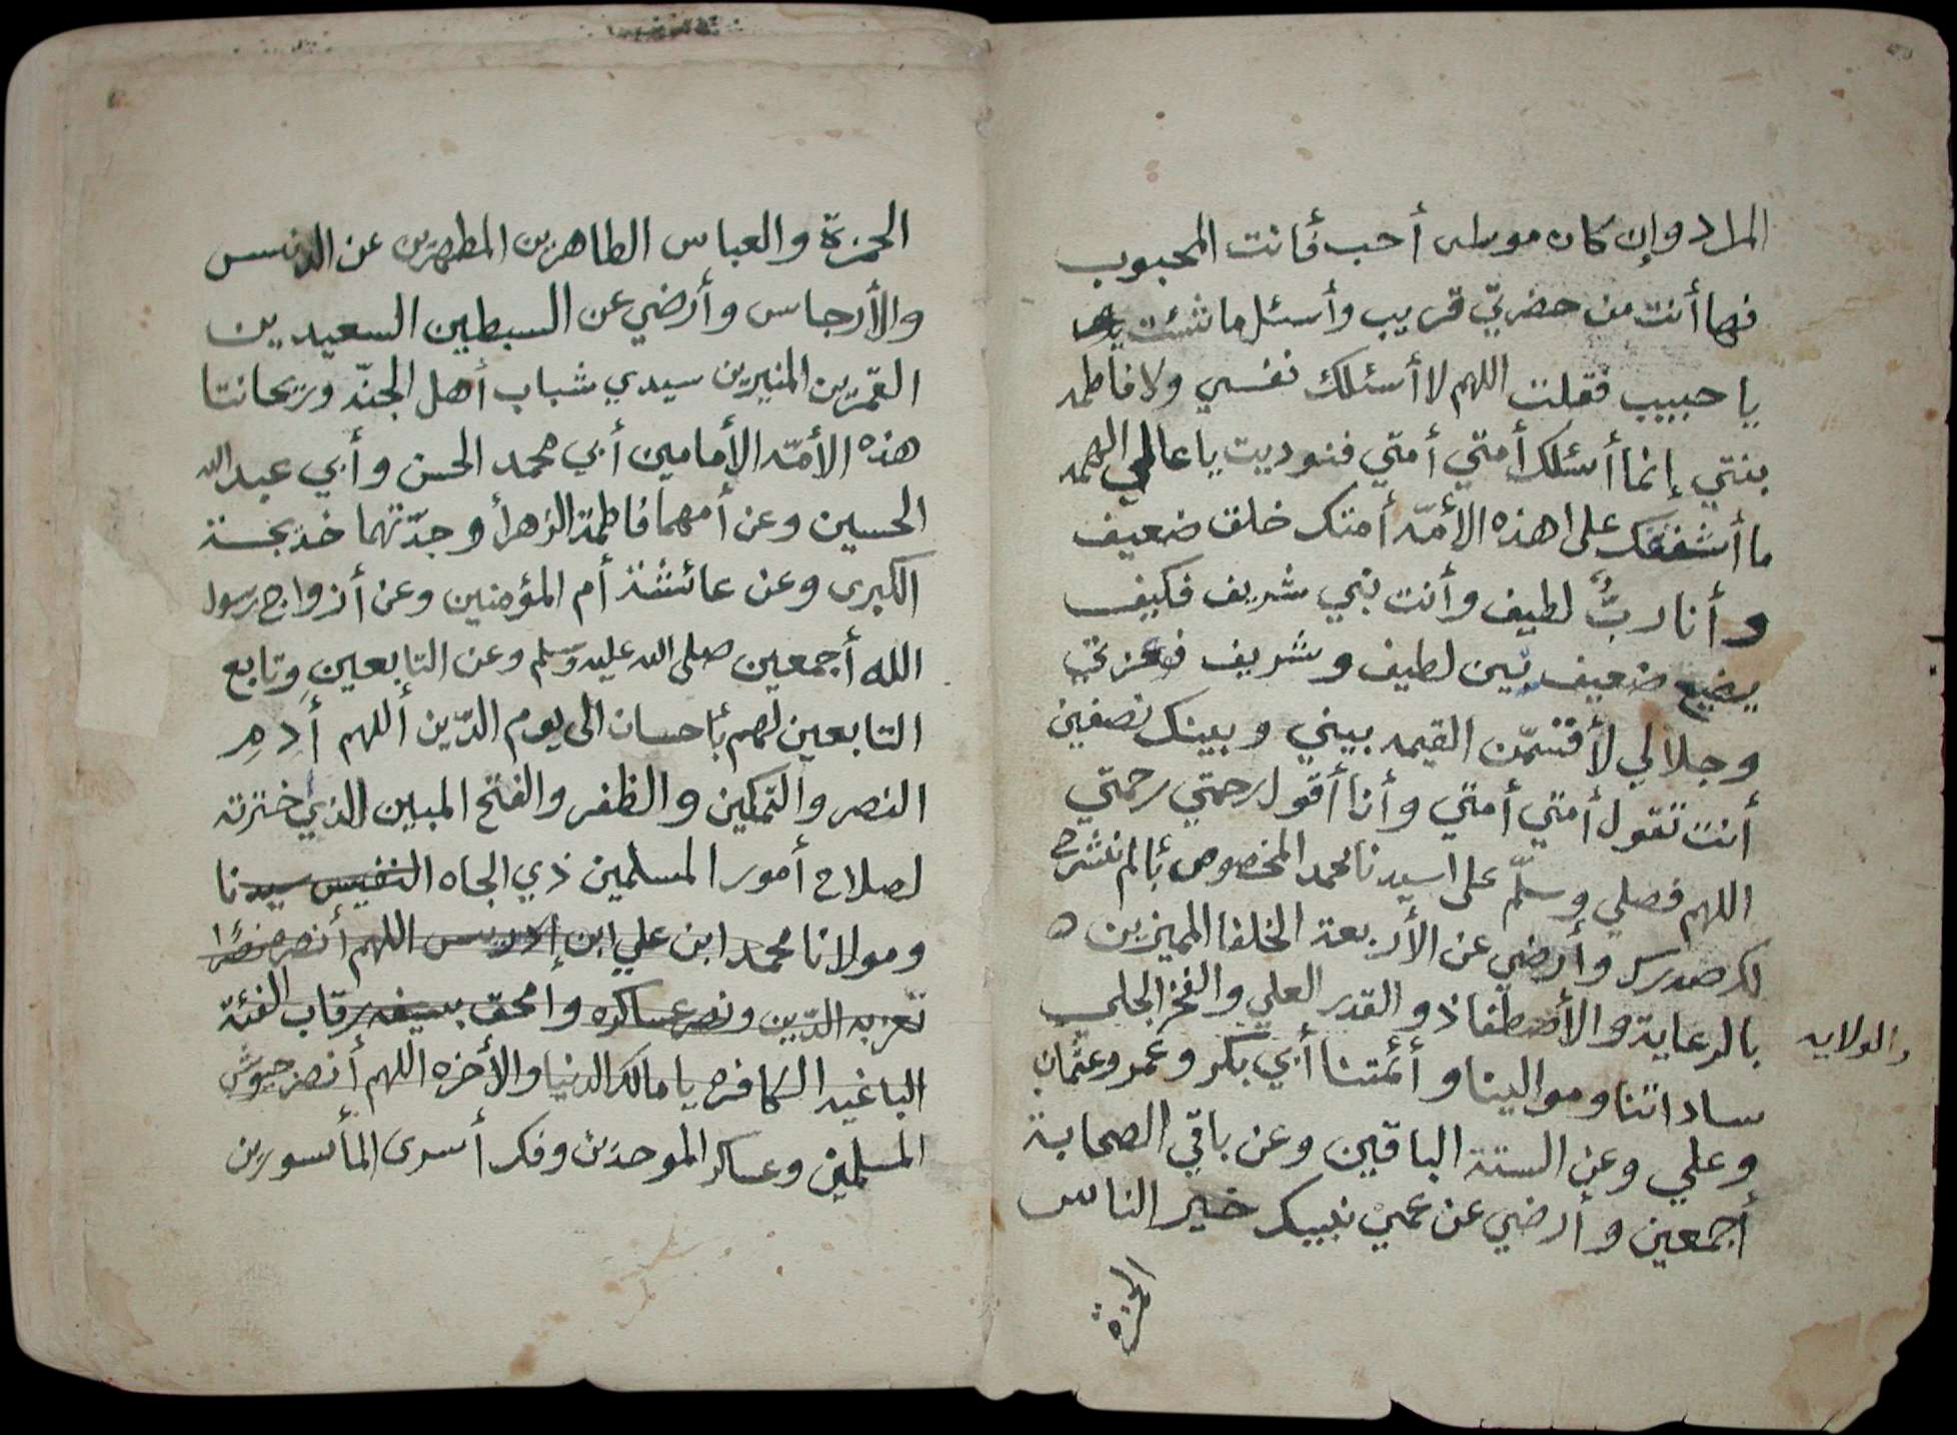 المراد وإن كان موسى أحب فأنت المحبوب
فها أنت من حضرتي قريب وأسئل ما شئت
يا حبيب فقلت اللهم لا أسئلك نفسي ولا فاطمه
بنتي إنما أسئلك أمتي أمتي فنوديت يا عالي الهمه
ما أشفقك على هذه الأمّه أمتك خلق ضعيف
وأنا ربٌّ لطيف وأنت نبي شريف فكيف
يضيع ضعيف بين لطيف وشريف فوعزتي
وجلالي لأقتسمّن القيمه بيني وبينك نصفين
أنت تقول أمتي أمتي وأنا أقول رحمتي رحمتي
اللهم فصلي وسلّم على سيدنا محمد المخصوص بألم نشرح
لك صدرك وأرضي عن الأربعة الخلفا المميزين
بالرعاية والأصطفا ذو القدر العلي والفخر الجلي
والولايه
ساداتنا وموالينا وأئمتنا أبي بكر وعمر وعثمان
وعلي وعن الستة الباقين وعن باقي الصحابة
أجمعين وأرضي عن عمي نبيك خير الناس
الحمزة
الحمزة والعباس الطاهرين المطهرين عن الدنس
والأرجاس وأرضي عن السبطين السعيدين
القمرين المنيرين سيدي شباب أهل الجنّه وريحانتا
هذه الأمّه الأمامين أبي محمد الحسن وأبي عبد الله
الحسين وعن أمهما فاطمة الزهرا وجدّتهما خديجة
الكبرى وعن عائشة أم المؤمنين وعن أزواج رسول
الله أجمعين صلى الله عليه وسلم وعن التابعين وتابع
التابعين لهم بأحسان الى يوم الدّين أللهم أدم
النصر والتمكين والظفر والفتح المبين الذي أخترته
لصلاح أمور المسلمين ذي الجاه النفيس سيدنا
ومولانا محمد ابن علي ابن إدريس اللهم أنصره نصرًا
تعز به الدّين ونصر عساكره وامحق بسيفه رقاب الفئة
الباغيه الكافره يا مالك الدنيا والأخره اللهم أنصر جيوش
المسلمين وعساكر الموحدين وفك أسرى المأسورين